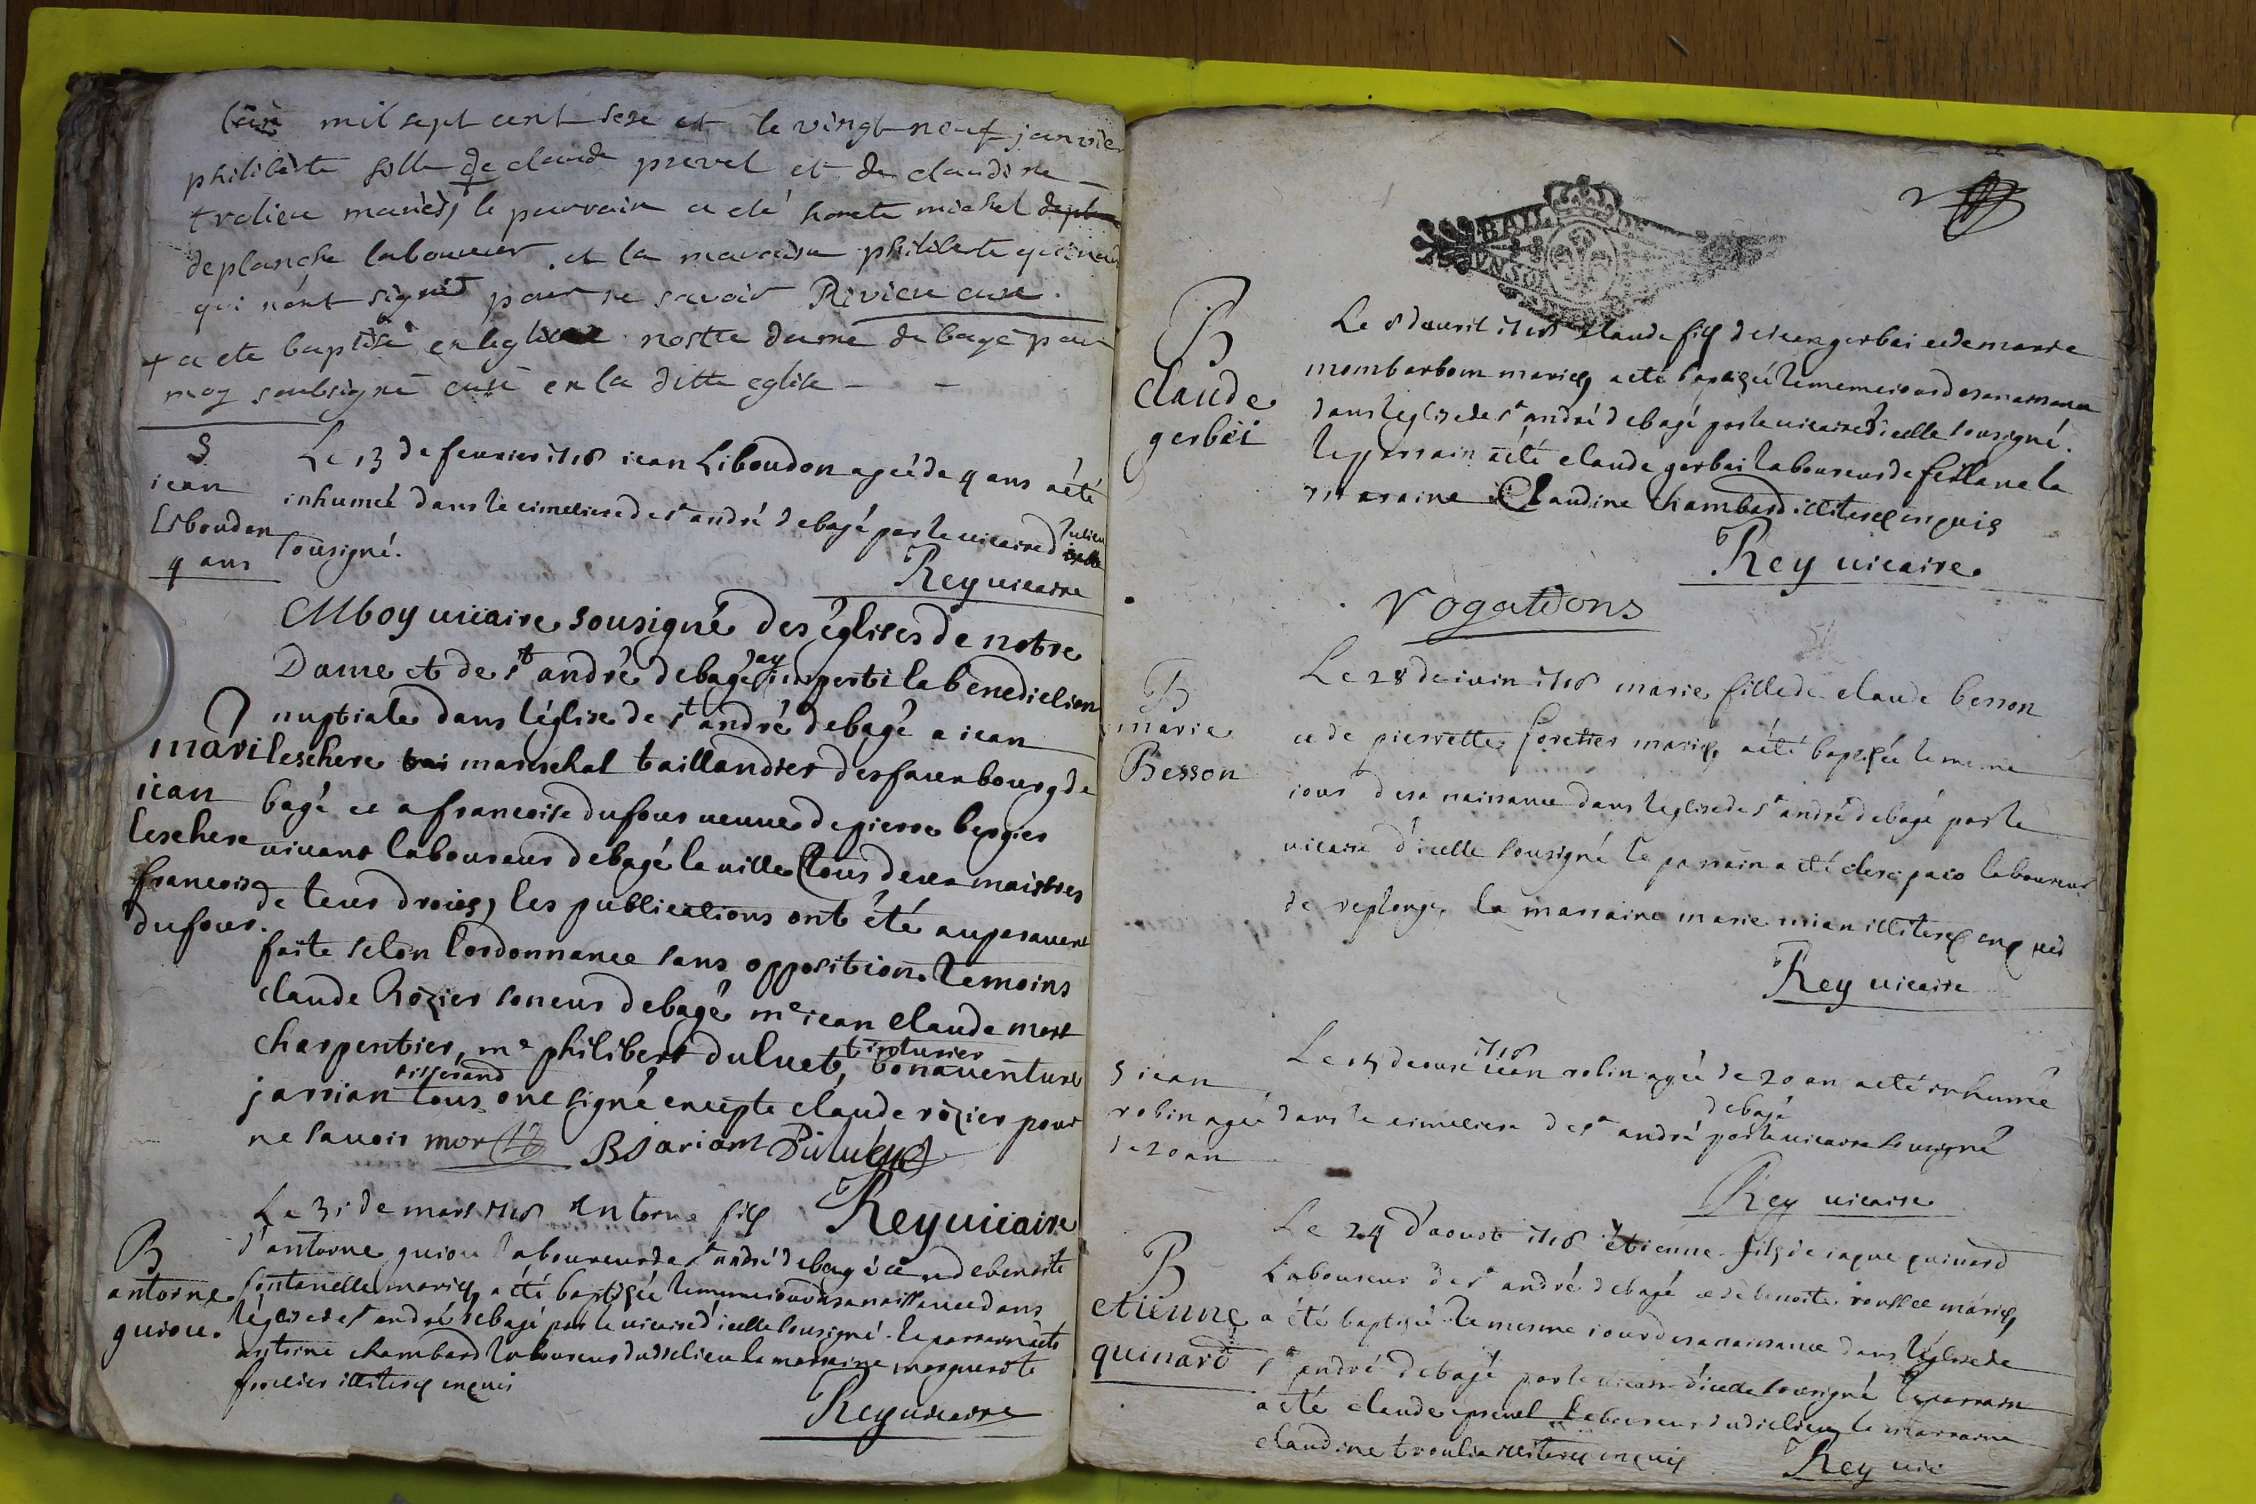 mil sept cent seze et le vingt neuf janvier
philiberte fille de claude prevel et de claudine
trolieu mariés, le parrain a eté honete michel
deplanche laboureur et la maraine philiberte
qui n'ont signéz pour ne savoir Rivieu curé.
+ a ete baptisé en leglise nostre dame de bagé par
moy soubsigné curé en la ditte eglise
S
iean
Liboudon
4 ans
Le 13 de feurier 1718 iean Liboudon ageé de 4 ans a été
inhumeé dans le cimetiere de st andré de bagé par le uicaire dudit lieu
sousigné.
Rey uicaire
uicaire sousigné des églises de notre
Dame et de st andré de bagé ay imparti la benediction
nuptiale dans l'église de st andré de bagé a iean
mari
iean
leschere
francoise
dufour.
leschere mareschal taillandier des fauxbourg de
bagé et a francoise dufour ueuue de pierre bergier
uiuant laboureur de bagé la uille tous deux maistres
de leur droits, les publications ont été auparauent
faite selon l'ordonnance sans opposition. temoins
claude Rozier soneur de bagé me iean claude mort
charpentier, me philibert duluet, tinturier bonauenture
jarrian tisserand tous ont signé excepte claude rozier pour
ne sauoir mort BJariant Duluet
Rey uicaire
B
antoine
guiou.
Le 31 de mars 1718 Antoine fils
d'antoine guiou laboureur de st andré de bagé et de benoite
fontanelle mariés, a été baptisée le meme iour de sa naissance dans
l'église de st andré de bagé par le uicaire d'icelle sousigné. le parrain a eté
antoine chambard laboureur dudit lieu la marraine marguerite
illiteres enquis
Rey uicaire
2
BAIL DE
B
claude
gerbai
Le 8 d'auril 1718 claude fils de iean gerbai et de marie
mombarbom mariés, a eté baptizée le meme iour de sa naissance
dans l'eglise de st andré de bagé par le uicaire d'icelle sousigné.
le parrain a été claude gerbai laboureur de feillans la
maraine Claudine Chambard illiteres enquis
Rey uicaire
rogations
B
marie
Besson
Le 28 de iuin 1718 marie fille de claude besson
et de pierrette foretier mariés, a été baptisée le meme
iour de sa naissance dans l'eglise de st andré de bagé par le
uicaire d'icelle sousigné le parrain a été clere laboureur
de replonge, la marraine marie illiteres enquis
Rey uicaire
S iean
robin ageé
de 20 an
1718 iean robin ageé de 20 an a été inhumé
dans le cimetiere de st andré de bagé par le uicaire sousigné
Rey uicaire
B
etienne
quinard
Le 24 d'aoust 1718 etienne fils de iaque quinard
laboureur de st andré de bagé et de benoite mariés,
a été baptisé le mesme iour de sa naissance dans l'église de
st andré de bagé par le uicaire d'icelle sousigné le parrain
a été claude preuel laboureur dudit lieu la marraine
claudine troulie illiteres enquis
Rey uic